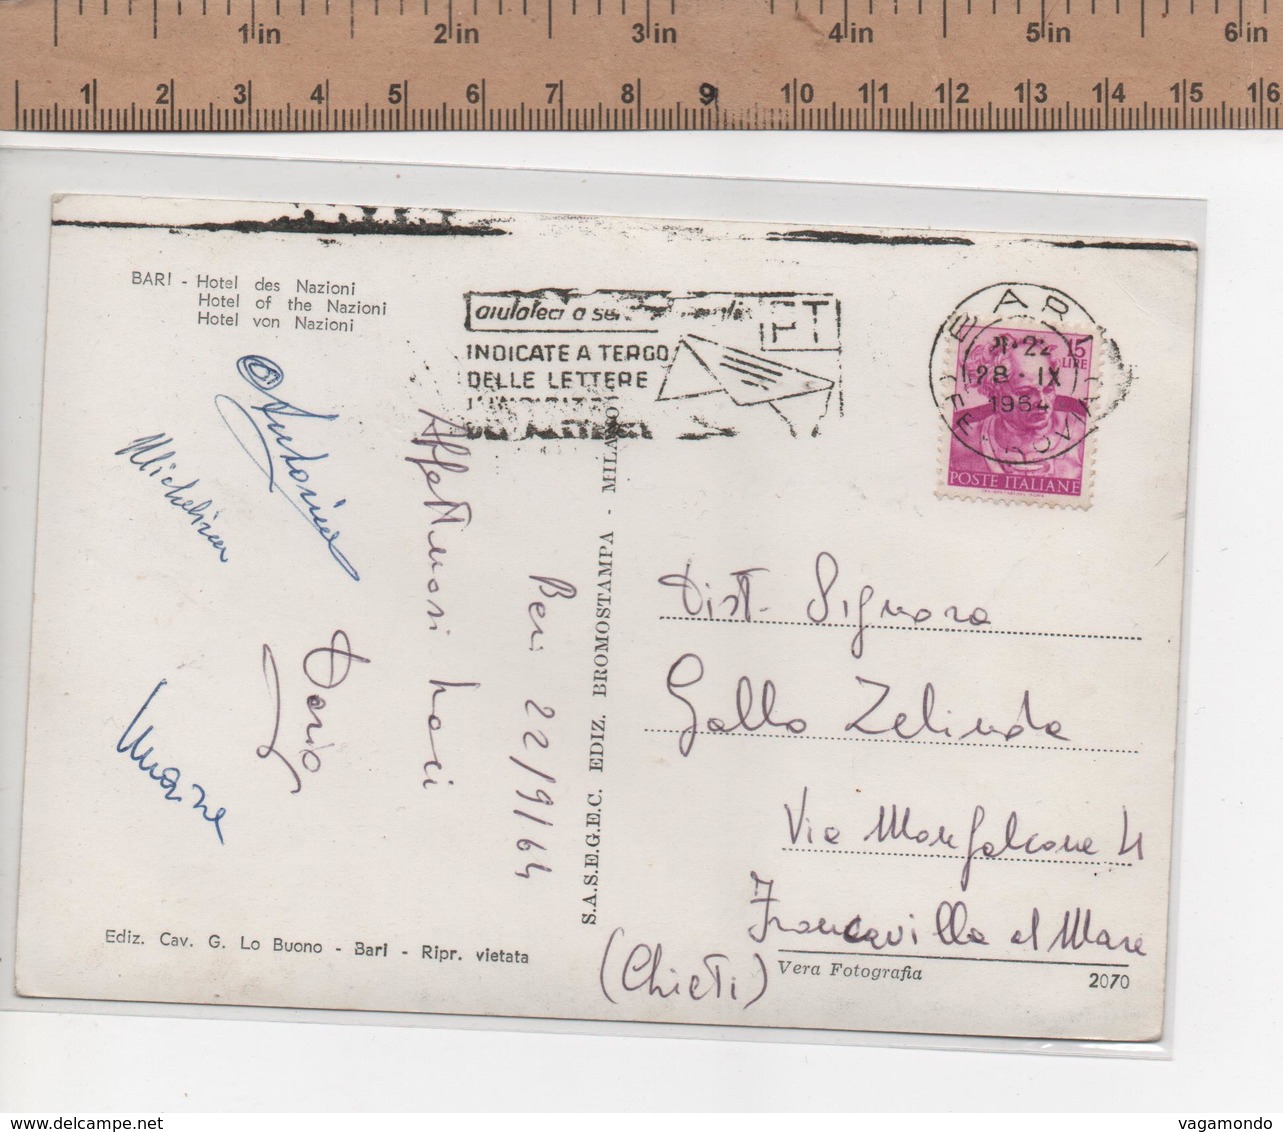 1in 2in 3in 4in 5in 6in
1 2 3 4 5 6 7 8 9 10 11 12 13 14 15 16
BARI - Hotel des Nazioni
Hotel of the Nazioni
Hotel von Nazioni
aiutateci a
PT
INDICATE A TERGO
DELLE LETTERE
BARI
FERROVIA
28 · IX
1964
15
LIRE
POSTE ITALIANE
Antonia
Michelina
Dario
Affettuosi baci
Bari 22/9/64
S.A.S.E.G.E.C. EDIZ. BROMOSTAMPA - MILANO
Dist. Signora
Gallo Zelinda
Via Monfalcone 4
Francavilla al Mare
(Chieti)
Ediz. Cav. G. Lo Buono - Bari - Ripr. vietata
Vera Fotografia
2070
delcampe.net
vagamondo